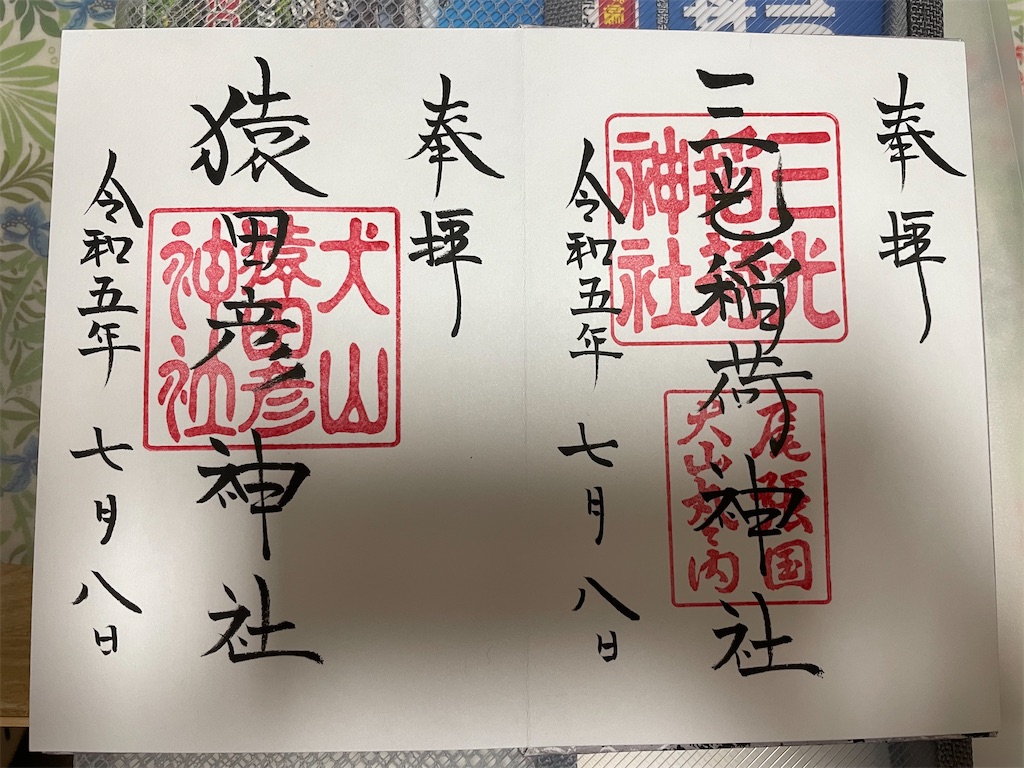 奉拝
三光稲荷神社
三光
稲荷
神社
尾張国
犬山城内
令和五年七月八日
奉拝
猿田彦神社
犬山
猿田彦
神社
令和五年七月八日